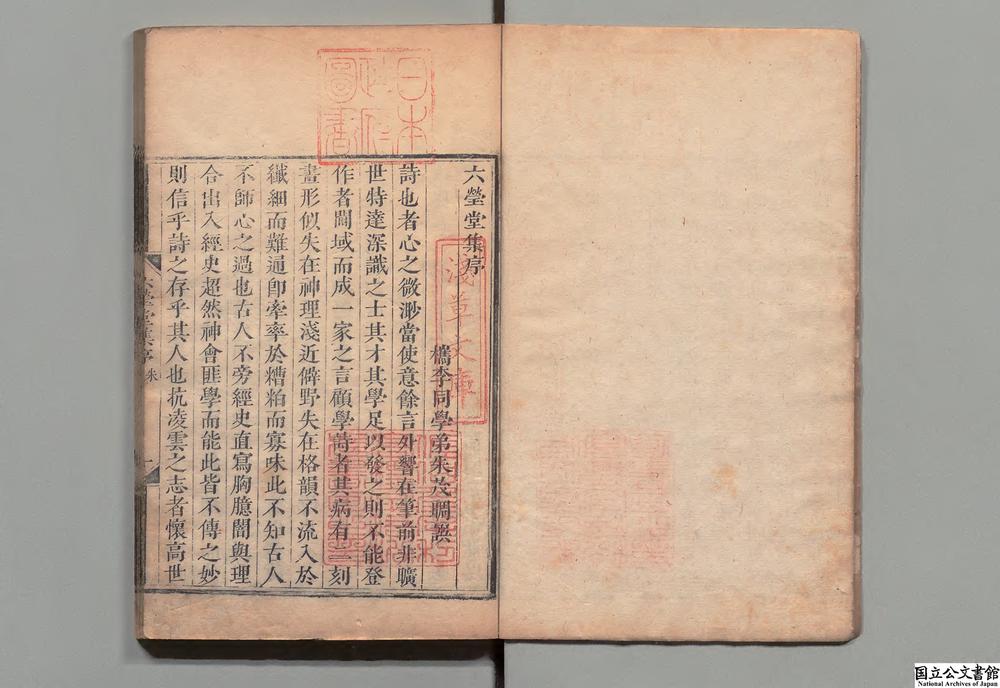 六瑩堂集序
檇李同學弟朱茂晭譔
詩也者心之微渺當使意餘言外響在筆前非曠
世特達深識之士其才其學足以發之則不能登
作者閫域而成一家之言顧學詩者其病有三刻
畫形似失在神理淺近僻野失在格韻不流入於
纖細而難通卽牽率於糟粕而寡味此不知古人
不師心之過也古人不旁經史直寫胸臆闇與理
合出入經史超然神會匪學而能此皆不傳之妙
則信乎詩之存乎其人也抗凌雲之志者懷高世
日本
圖書
淺草文庫
六瑩堂集序 朱 一
国立公文書館
National Archives of Japan